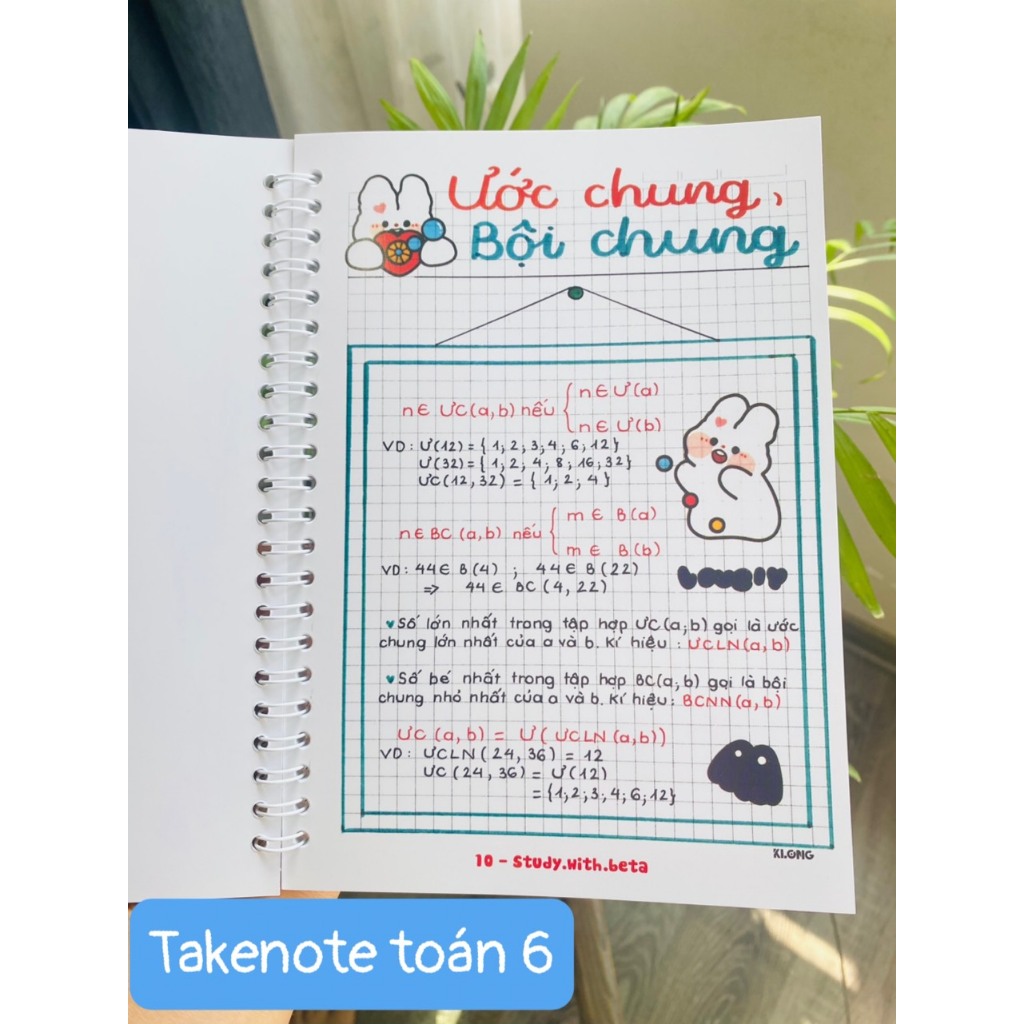 Ước chung,
Bội chung
n ∈ ƯC(a,b) nếu { n ∈ Ư(a)
n ∈ Ư(b)
VD: Ư(12) = { 1; 2; 3; 4; 6; 12}
Ư(32) = { 1; 2; 4; 8; 16; 32}
ƯC(12, 32) = { 1; 2; 4 }
n ∈ BC (a,b) nếu { m ∈ B(a)
m ∈ B(b)
VD: 44 ∈ B(4) ; 44 ∈ B(22)
=> 44 ∈ BC (4, 22)
♥ Số lớn nhất trong tập hợp ƯC(a;b) gọi là ước
chung lớn nhất của a và b. Kí hiệu : ƯCLN(a,b)
♥ Số bé nhất trong tập hợp BC(a;b) gọi là bội
chung nhỏ nhất của a và b. Kí hiệu: BCNN(a,b)
ƯC (a,b) = Ư( ƯCLN (a,b))
VD: ƯCLN( 24, 36) = 12
ƯC (24, 36) = Ư(12)
= {1; 2; 3; 4; 6; 12}
KLONG
10 - Study.with.beta
Takenote toán 6